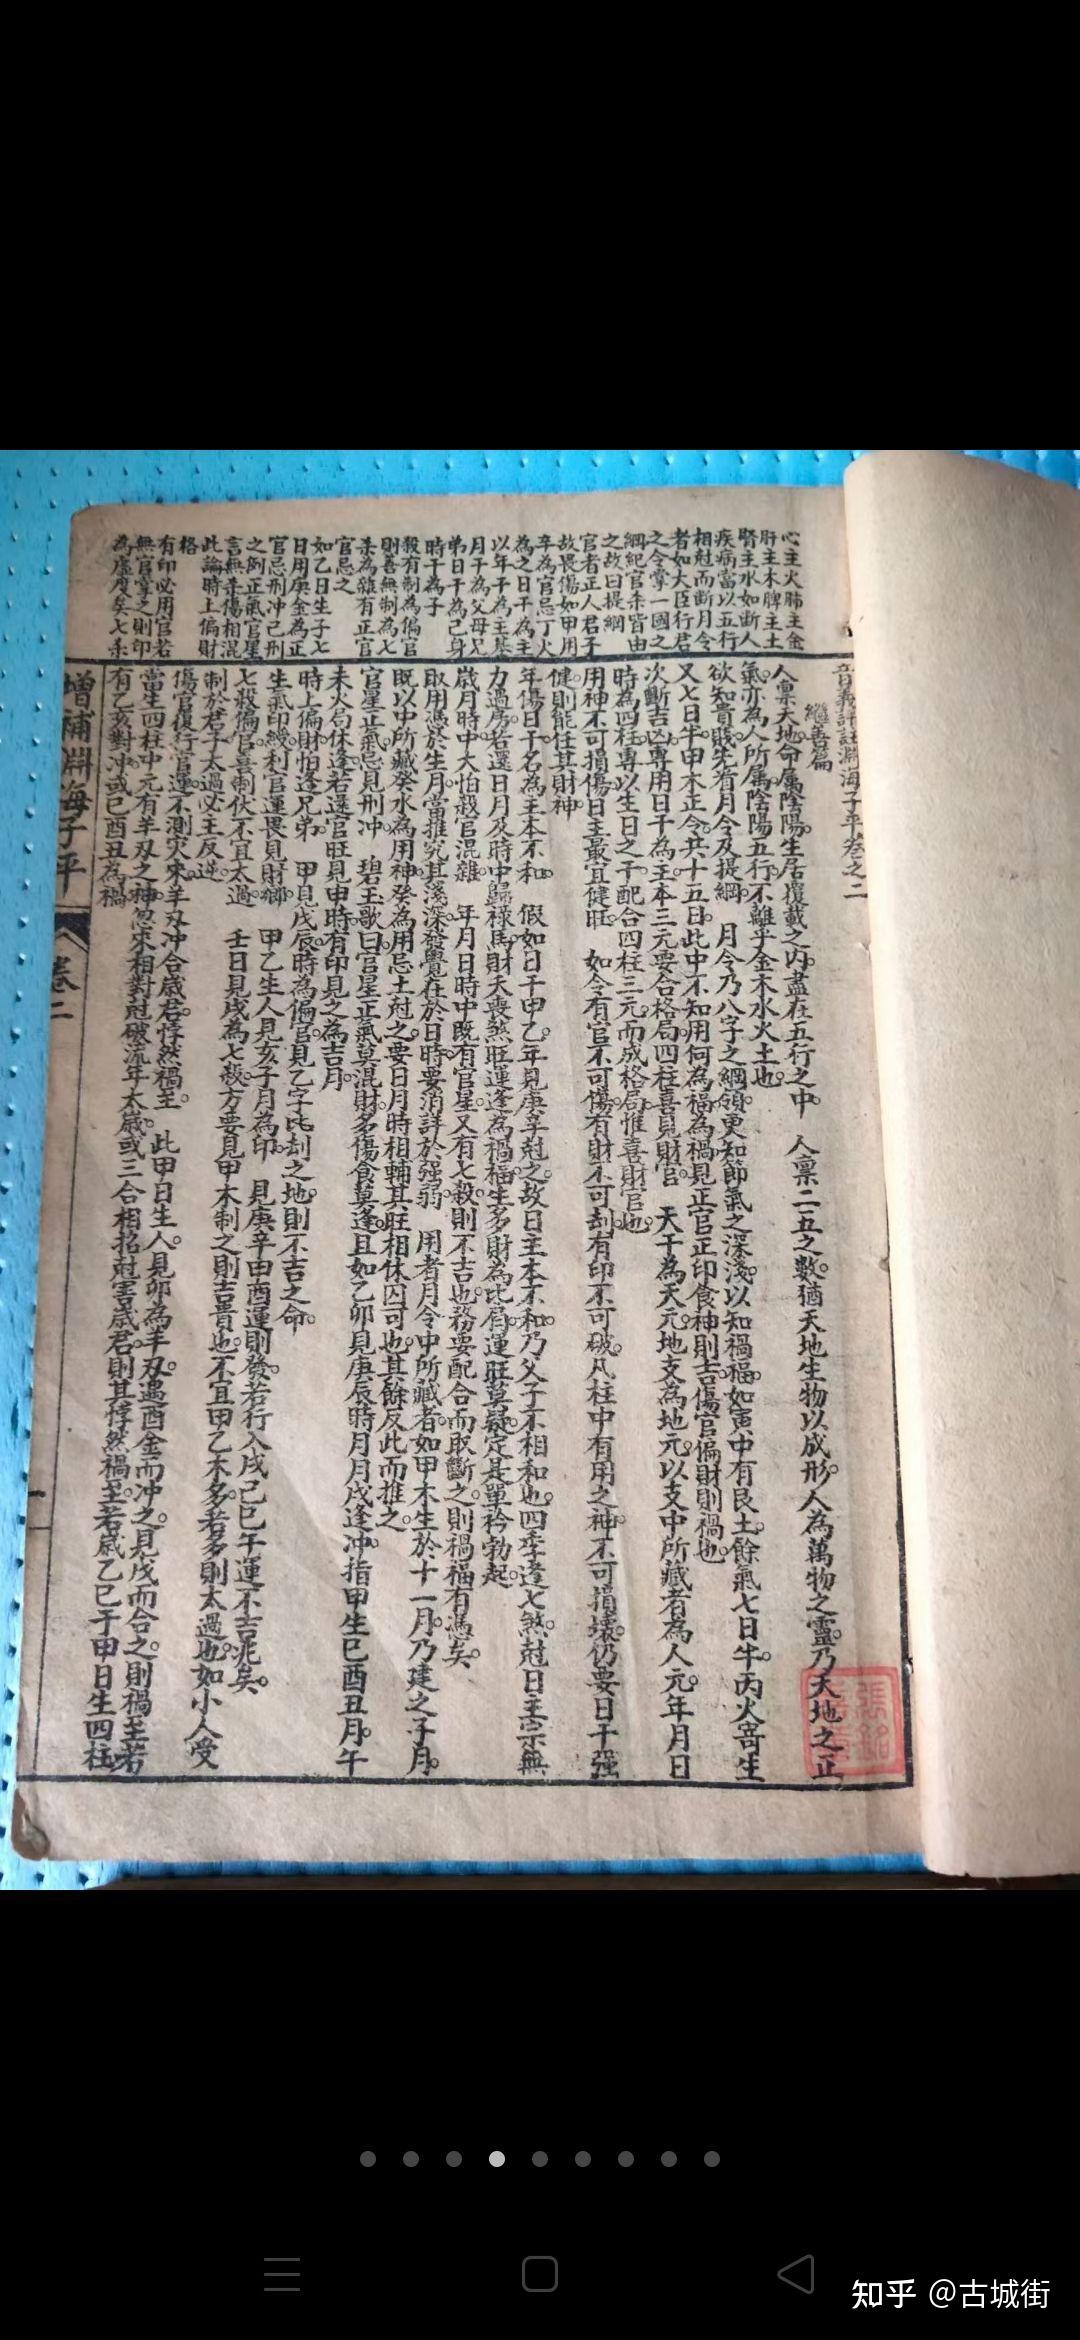 心主火肺主金
肝主木脾主土
腎主水如斷人
疾病當以五行
相尅而斷月令
者如大臣行君
之令掌一國之
綱紀官杀皆由
之故曰提綱
官者正人君子
故畏傷如甲用
辛為官忌丁火
為之日干為主
以年干為主基
月干為父母兄
弟日干為己身
時干為子
殺有制為偏官
則喜無制為七
杀為雜有正官
官忌之
如乙日生子七
日用庚金為正
官忌刑冲己刑
之例正氣官星
言無杀傷相混
此論時上偏財
格
有印必用官若
無官掌之則印
為虛度矣七杀
音義評註淵海子平卷之二
繼善篇
人禀天地命属陰陽生居覆載之内盡在五行之中 人禀二五之數猶天地生物以成形人為萬物之靈乃天地之正
氣亦為人所属陰陽五行不離乎金木水火土也
欲知貴賤先看月令及提綱 月令乃八字之綱領更知節氣之深淺以知禍福如寅中有艮土餘氣七日半丙火寄生
又七日半甲木正令共十五日此中不知用何為福為禍見正官正印食神則吉傷官偏財則禍也
次斷吉凶專用日干為主本三元要合格局四柱喜見財官 天干為天元地支為地元以支中所藏者為人元年月日
時為四柱專以生日之干配合四柱三元而成格局惟喜財官也
用神不可損傷日主最宜健旺 如令有官不可傷有財不可刦有印不可破凡柱中有用之神不可損壞仍要日干强
健則能任其財神
年傷日干名為主本不和 假如日干甲乙年見庚辛尅之故日主本不和乃父子不相和也四季逢七煞尅日主宗無
力過房若還日月及時中歸祿馬財夭喪煞旺運逢為禍福生多財為比肩運旺莫疑定是單衿勃起
歲月時中大怕殺官混雜 年月日時中既有官星又有七殺則不吉也務要配合而取斷之則禍福有憑矣
取用憑於生月當推究其淺深發覺在於日時要消詳於强弱 用者月令中所藏者如甲木生於十一月乃建之子月
既以中所藏癸水為用神癸為用忌土尅之要日月時相輔其旺相休囚可也其餘反此而推之
官星正氣忌見刑冲 碧玉歌曰官星正氣莫混財多傷食莫逢且如乙卯見庚辰時月月戍逢冲指甲生巳酉丑月午
未火局休逢若逢官旺見申時有印見之為吉月
時上偏財怕逢兄弟 甲見戊辰時為偏官見乙字比刦之地則不吉之命
生氣印綬利官運畏見財鄉 甲乙生人見亥子月為印 見庚辛申酉運則發若行入戌己巳午運不吉兆矣
七殺偏官喜制伏不宜太過 壬日見戊為七殺方要見甲木制之則吉貴也不宜甲乙木多若多則太過也如小人受
制於君子太過必主反逆
傷官復行官運不測灾來羊刃冲合歲君悖然禍至 此甲日生人見卯為羊刃遇酉金而冲之見戌而合之則禍至若
當生四柱中元有羊刃之神忽來相對尅破流年太歲或三合相招尅害歲君則其悖然禍至若歲乙巳于甲日生四柱
有乙亥對冲或巳酉丑為禍
增補淵海子平
卷二
一
知乎 @古城街